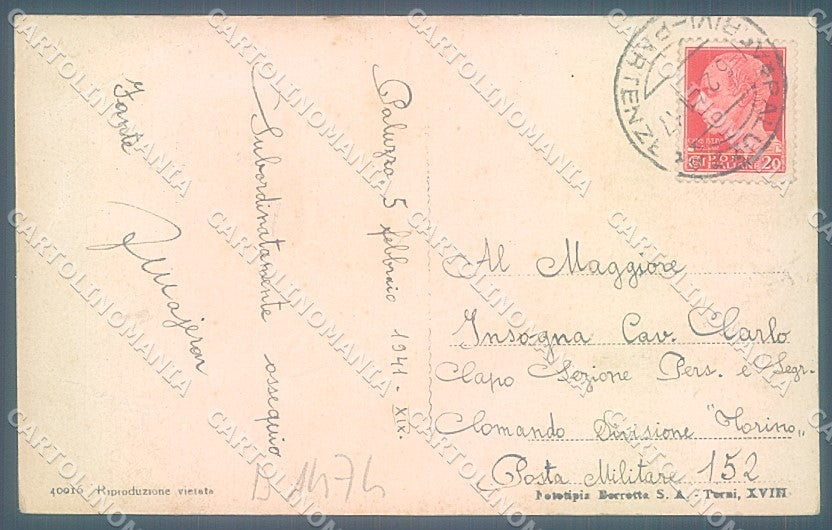 Paluzza 5 febbraio 1941 - XIX.
Subordinatamente ossequio
Fante
Al Maggiore
Insogna Cav. Carlo
Capo Sezione Pers. e Segr.
Comando Divisione "Torino"
Posta Militare 152
20
B 1474
40016 Riproduzione vietata
Fototipia Berretta S. A. - Terni, XVIII
ARRIVI-PARTENZE
CARTOLINOMANIA